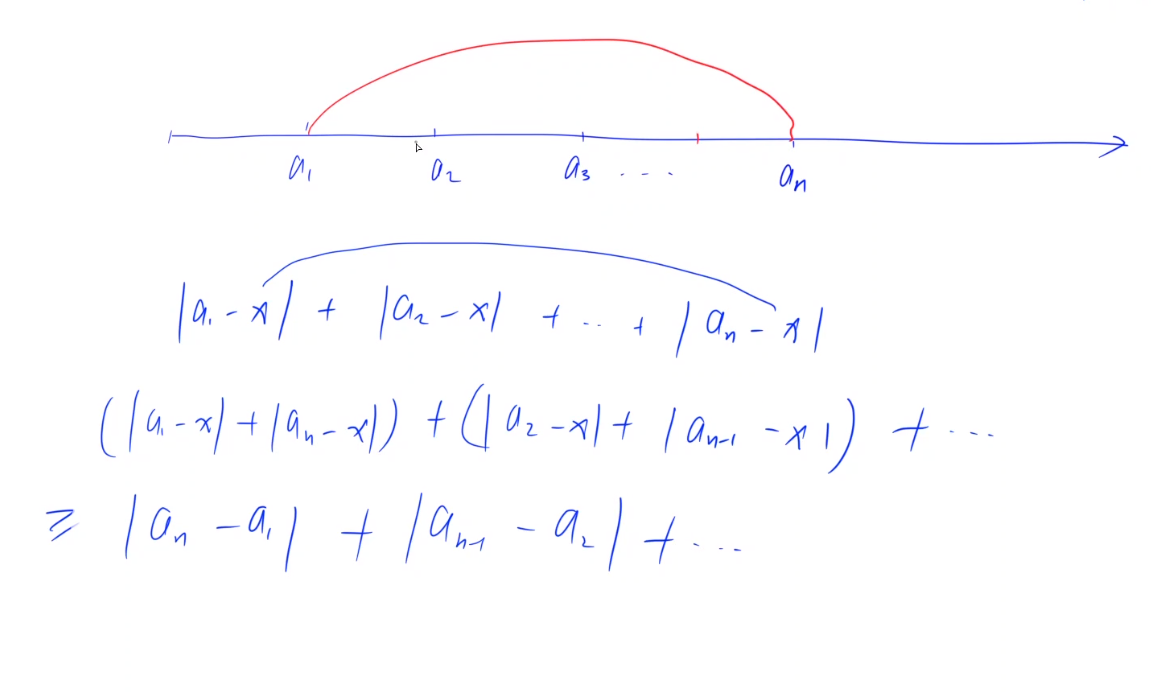 a₁ a₂ a₃ .... aₙ
|a₁ - x| + |a₂ - x| + .. + |aₙ - x|
(|a₁ - x| + |aₙ - x|) + (|a₂ - x| + |aₙ₋₁ - x|) + ...
≥ |aₙ - a₁| + |aₙ₋₁ - a₂| + ...